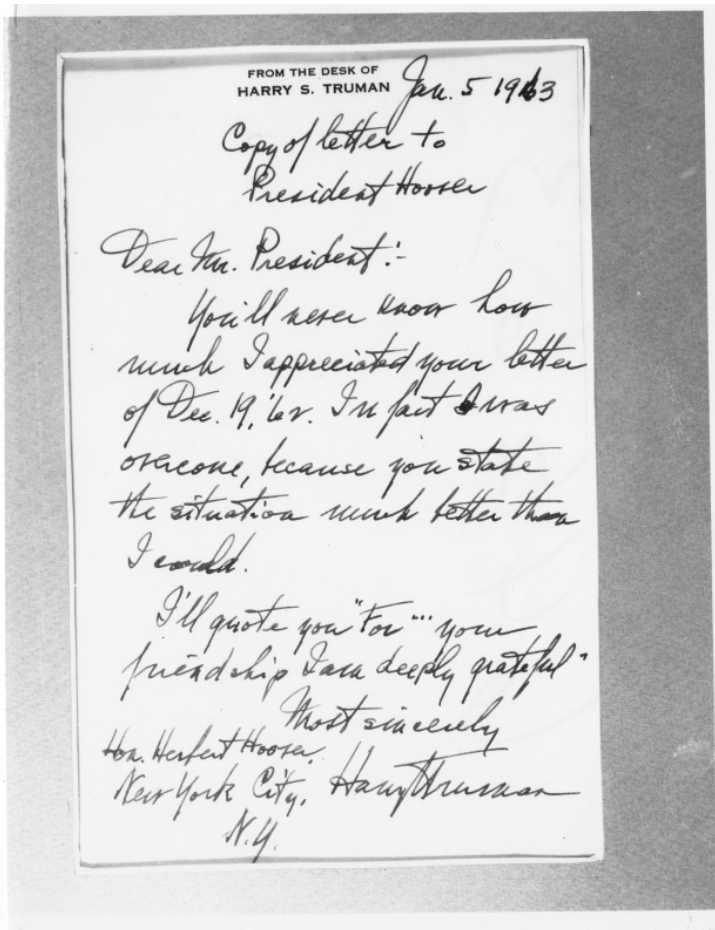 FROM THE DESK OF
HARRY S. TRUMAN
Jan. 5 1963
Copy of letter to
President Hoover
Dear Mr. President:-
You'll never know how
much I appreciated your letter
of Dec. 19, '62. In fact I was
overcome, because you state
the situation much better than
I could.
I'll quote you "For ''' your
friendship I am deeply grateful"
Most sincerely
Harry Truman
Hon. Herbert Hoover,
New York City,
N.Y.